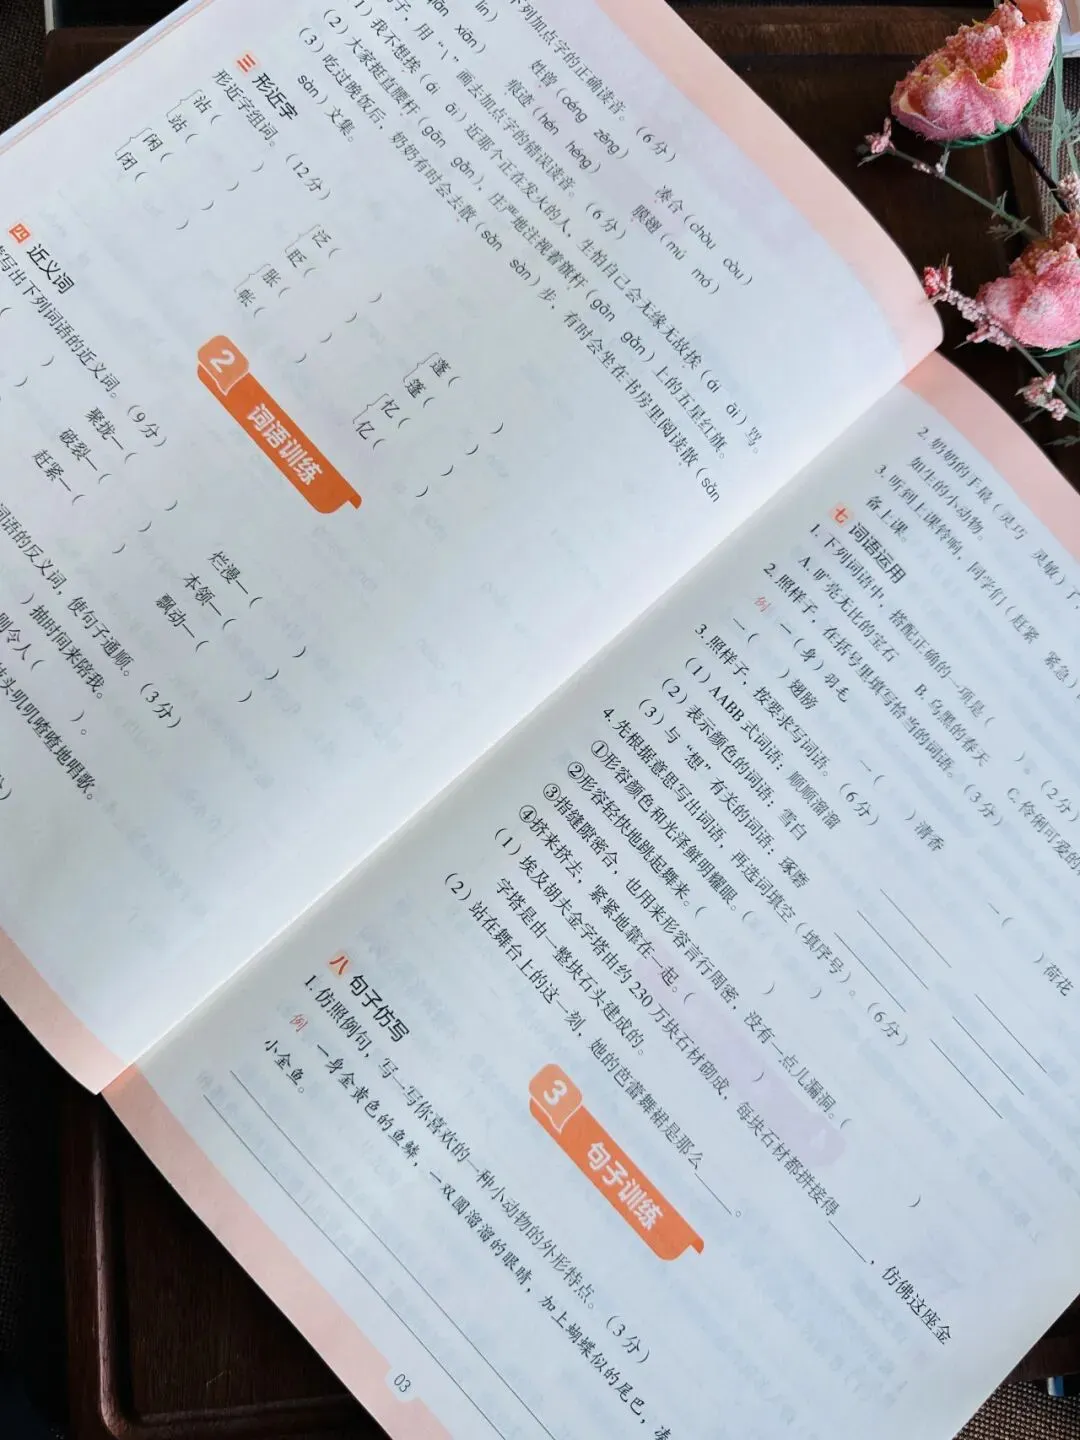 下列加点字的正确读音。（6分）
姓曾（céng zēng） 凑合（chòu còu）
痕迹（hén héng） 膜翅（mú mó）
子，用“\”画去加点字的错误读音。（6分）
（1）我不想挨（ái āi）近那个正在发火的人，生怕自己会无缘无故挨（ái āi）骂。
（2）大家挺直腰杆（gān gǎn），庄严地注视着旗杆（gān gǎn）上的五星红旗。
（3）吃过晚饭后，奶奶有时会去散（sǎn sàn）步，有时会坐在书房里阅读散（sǎn
sàn）文集。
三 形近字
形近字组词。（12分）
沾（ ） 泛（ ） 蓬（ ）
站（ ） 眨（ ） 篷（ ）
闲（ ） 胀（ ） 忆（ ）
闭（ ） 帐（ ） 亿（ ）
2 词语训练
四 近义词
写出下列词语的近义词。（9分）
聚拢—（ ） 烂漫—（ ）
破裂—（ ） 本领—（ ）
赶紧—（ ） 飘动—（ ）
词语的反义词，使句子通顺。（3分）
）抽时间来陪我。
则令人（ ）。
头叽叽喳喳地唱歌。
2. 奶奶的手最（灵巧 灵敏）了，
如生的小动物。
3. 听到上课铃响，同学们（赶紧 紧急）
备上课。
七 词语运用
1. 下列词语中，搭配正确的一项是（ ）。（2分）
A. 旷亮无比的宝石 B. 乌黑的春天 C. 伶俐可爱的
2. 照样子，在括号里填写恰当的词语。（3分）
例 一（身）羽毛 一（ ）清香 一（ ）荷花
一（ ）翅膀
3. 照样子，按要求写词语。（6分）
（1）AABB式词语：顺顺溜溜
（2）表示颜色的词语：雪白
（3）与“想”有关的词语：琢磨
4. 先根据意思写出词语，再选词填空（填序号）。（6分）
①形容颜色和光泽鲜明耀眼。（ ）
②形容轻快地跳起舞来。（ ）
③指缝隙密合，也用来形容言行周密，没有一点儿漏洞。（ ）
④挤来挤去，紧紧地靠在一起。（ ）
（1）埃及胡夫金字塔由约230万块石材砌成，每块石材都拼接得，仿佛这座金
字塔是由一整块石头建成的。
（2）站在舞台上的这一刻，她的芭蕾舞裙是那么。
3 句子训练
八 句子仿写
1. 仿照例句，写一写你喜欢的一种小动物的外形特点。（3分）
例 一身金黄色的鱼鳞，一双圆溜溜的眼睛，加上蝴蝶似的尾巴，凑
小金鱼。
03